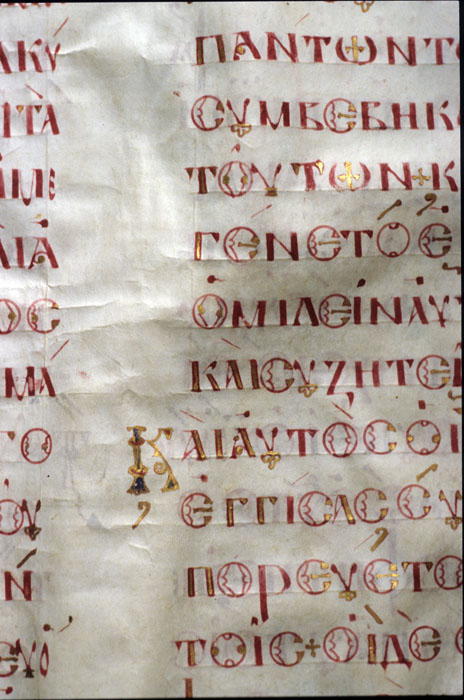 ΚΥ
ΙΤΑ
ΙΑ
ΟϹΕ
ΜΑ
ΤΟ
ΟΥ
Ν
ΕΥΟ
ΠΑΝΤΩΝΤ
ϹΥΜΒΕΒΗΚ
ΤΟΥΤΩΝ+Κ
ΓΕΝΕΤΟΕ
ΟΜΙΛΕΙΝΑΥ
ΚΑΙϹΥΖΗΤΕ
ΚΑΙΑΥΤΟϹΟΙ
ΕΓΓΙϹΑϹϹΥ
ΠΟΡΕΥΕΤΟ
ΤΟΙϹ+ΟΙΔΕ